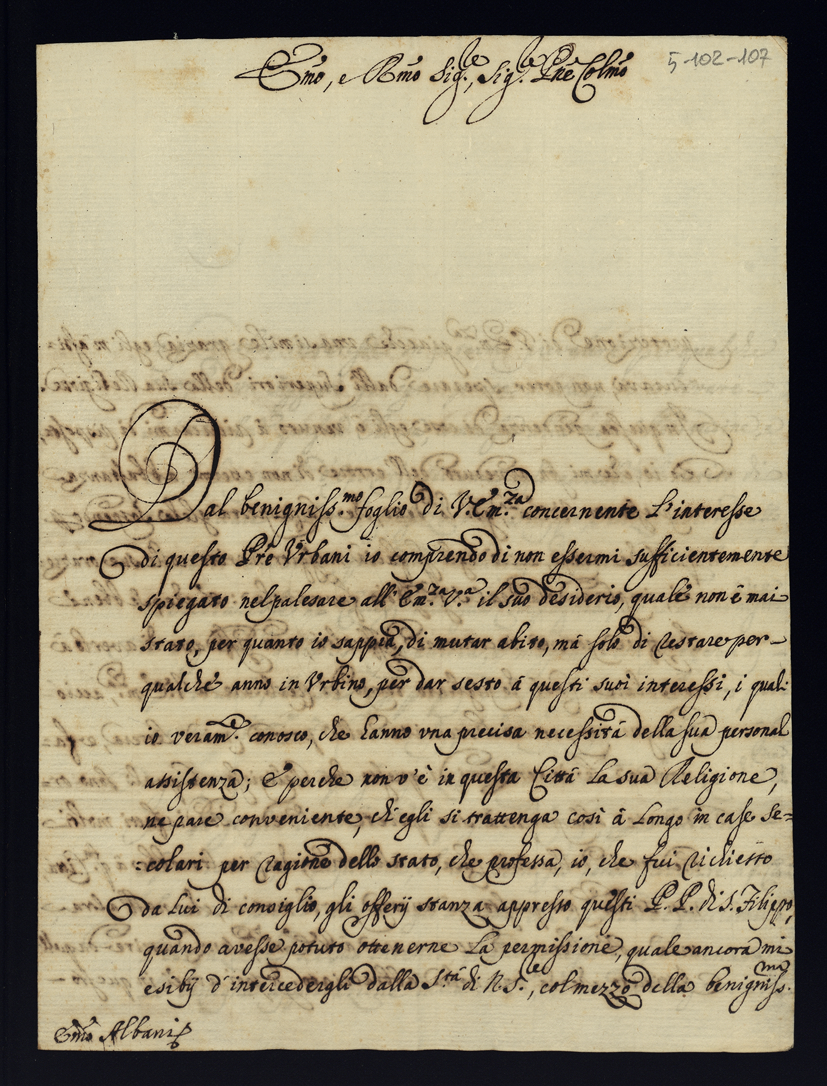 Emo, e Rmo Sig.re, Sig.re Pñe Colmo
5-102-107
Dal benigniss.mo foglio di V. Em.za concernente l'interesse
di questo Prē Urbani io comprendo di non essermi sufficientemente
spiegato nel palesare all'Em.za V.a il suo desiderio, quale non è mai
stato, per quanto io sappia, di mutar abito, mà solo di restare per-
qualche anno in Urbino, per dar sesto à questi suoi interessi, i quali
io veram.te conosco, che hanno una precisa necessità della sua personal
assistenza; E perche non v'è in questa Città la sua Religione,
ne pare conveniente, ch'egli si trattenga così à longo in case se=
=colari per ragione dello stato, che professa, io, che fui richiesto
da lui di consiglio, gli offerij stanza appresso questi P.P. di S. Filippo,
quando avesse potuto ottenerne la permissione, quale ancora mi
esibij d'intercedergli dalla S.tà di N. S.re, col mezzo della benigniss.ma
Emo Albani